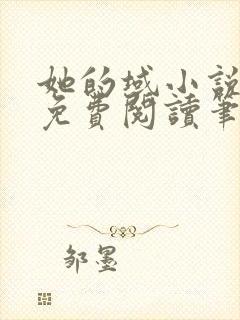 她的域小說
免費閱讀筆
邹墨